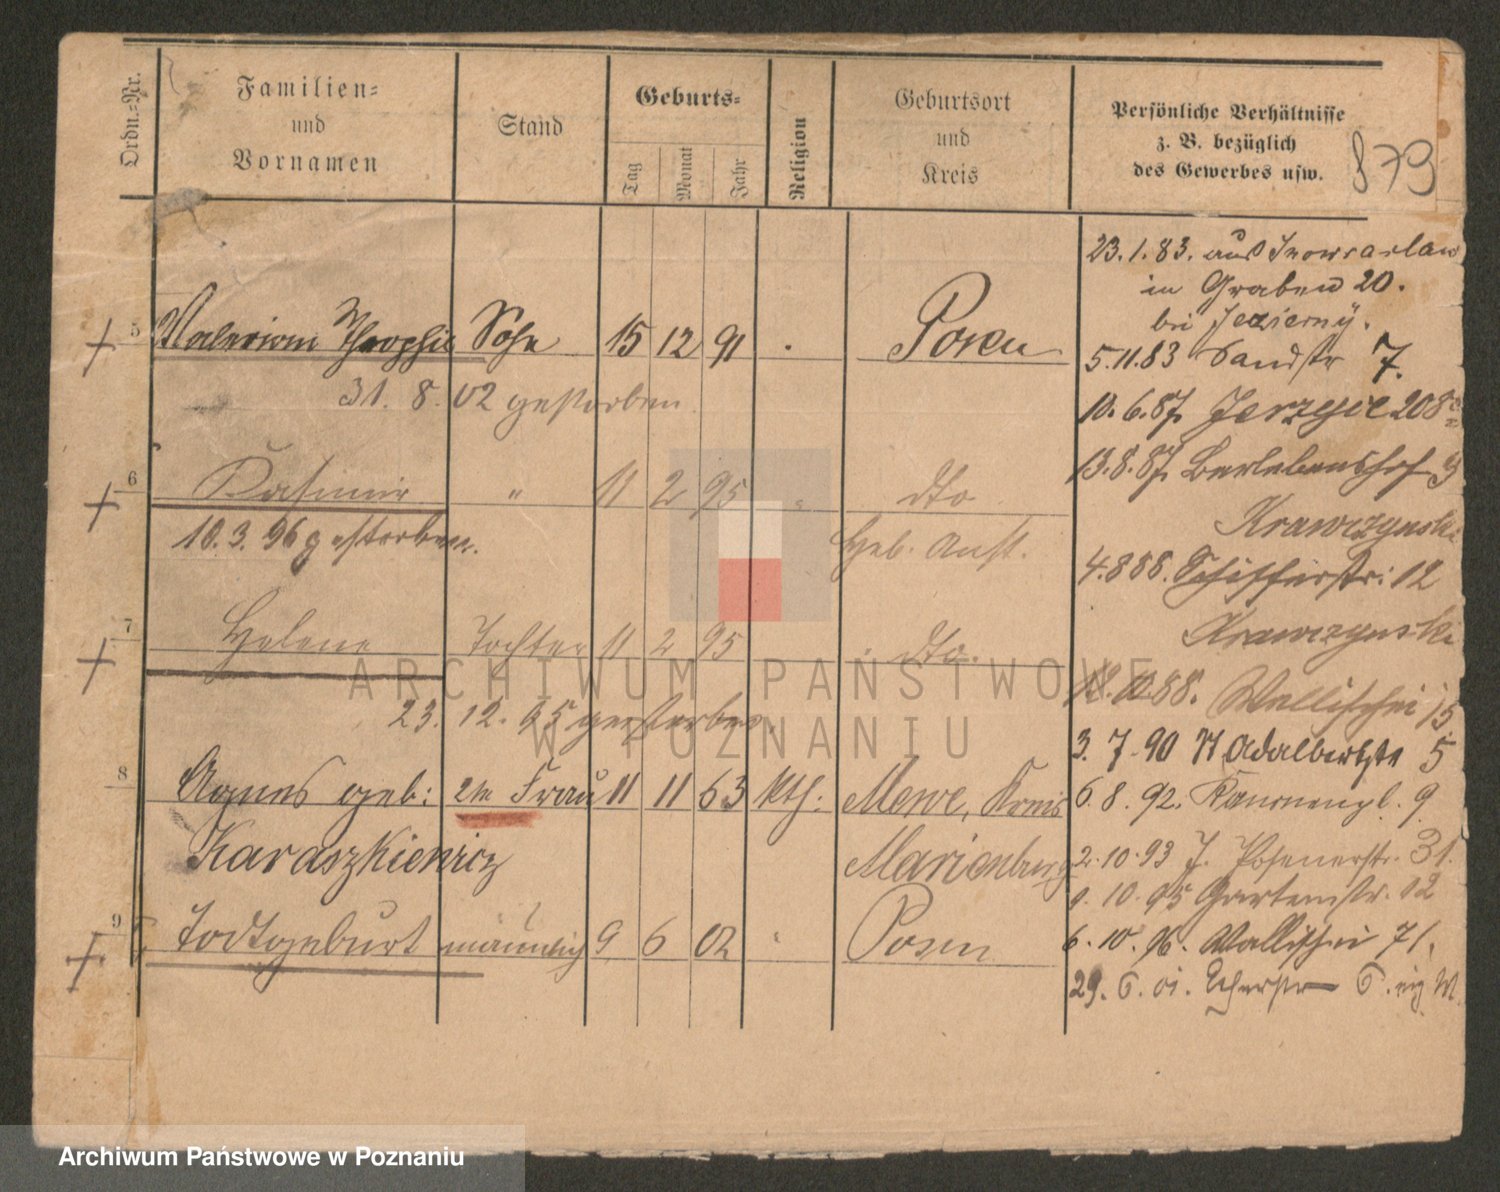 Ordn.-Nr.
Familien-
und
Vornamen
Stand
Geburts-
Tag
Monat
Jahr
Religion
Geburtsort
und
Kreis
Persönliche Verhältnisse
z. B. bezüglich
des Gewerbes usw.
879
5 Valerian Theophil Sohn 15 12 91 Posen
31. 8. 02 gestorben
6 Kasimir " 11 2 95 dto
10. 3. 96 gestorben. Heb. Anst.
7 Helene Tochter 11 2 95 dto.
23. 12. 95 gestorben.
8 Agnes geb: 2te Frau 11 11 63 kth: Mewe, Kreis
Karaszkiewicz Marienburg
9 Todtgeburt männlich 9 6 02 Posen
23. 1. 83. aus Inowrazlaw
in Graben 20.
bei Jezierny.
5. 11. 83 Sandstr 7.
10. 6. 87. Jerzyce 208
13. 8. 87. Berlebenshof
Krawczynski
4. 8 88. Schifferstr: 12
Krawczynski
88. Wallischei 15
3. 7. 90 St Adalbertstr 5
6. 8. 92. Kanonenpl. 9
2. 10. 93 J. Posenerstr. 31.
9. 10. 95 Gartenstr. 12
6. 10. 96. Wallischei 71.
29. 6. 01. 6.
ARCHIWUM PAŃSTWOWE
W POZNANIU
Archiwum Państwowe w Poznaniu